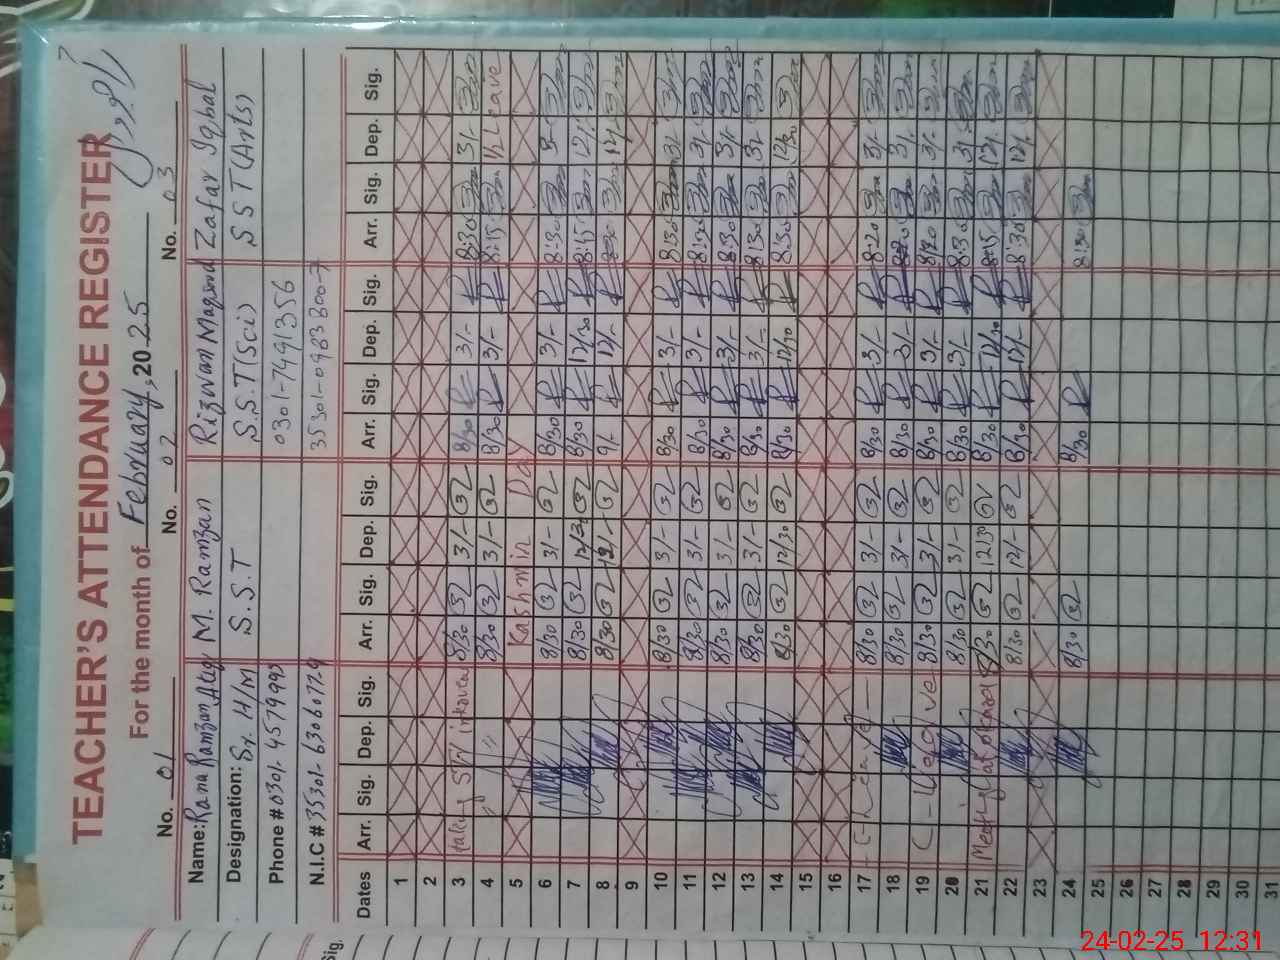 TEACHER'S ATTENDANCE REGISTER
For the month of February, 2025
No. 01 No. 02 No. 03
Name: Rana Ramzan M. Ramzan Rizwan Maqsood Zafar Iqbal
Designation: Sr. H/M S.S.T S.S.T(Sci) SST(Arts)
Phone # 0301-4579995 0301-7491356
N.I.C # 35301- 35301-0983800-7
Dates Arr. Sig. Dep. Sig. Arr. Sig. Dep. Sig. Arr. Sig. Dep. Sig. Arr. Sig. Dep. Sig.
1
2
3 8/30 3/- 8/30 3/- 8:30 3/-
4 8/30 3/- 8/30 3/- 8:15 1/2 Leave
5 Kashmir Day
6 8/30 3/- 8/30 3/- 8:30 3/-
7 8/30 12/30 8/30 12/30 8:15 12/-
8 8/30 12/- 9/- 12/- 8:30 12/-
9
10 8/30 3/- 8/30 3/- 8:30 3/-
11 8/30 3/- 8/30 3/- 8:30 3/-
12 8/30 3/- 8/30 3/- 8:30 3/-
13 8/30 3/- 8/30 3/- 8:30 3/-
14 8/30 12/30 8/30 12/30 8:30 12/30
15
16
17 C-Leave 8/30 3/- 8/30 3/- 8:20 3/-
18 8/30 3/- 8/30 3/- 8:20 3/-
19 C-Leave 8/30 3/- 8/30 3/- 8:20 3/-
20 8/30 3/- 8/30 3/- 8:30 3/-
21 Meeting at 8/30 12:30 8/30 12/30 8:15 12/-
22 8/30 12/- 8/30 12/- 8:30 12/-
23
24 8/30 8/30 8:30
25
26
27
28
29
30
31
Sig.
24-02-25 12:31